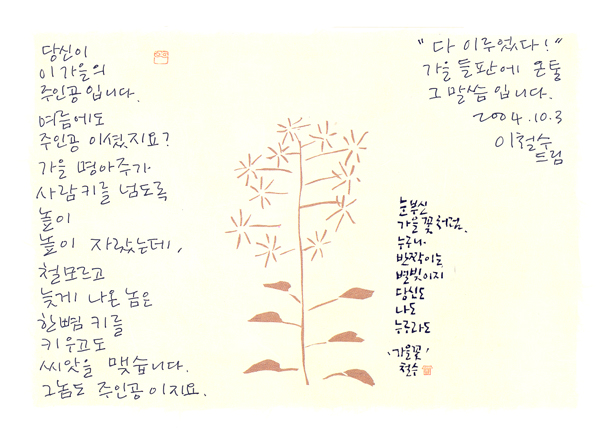 당신이
이 가을의
주인공입니다.
여름에도
주인공 이셨지요?
가을 명아주가
사람키를 넘도록
높이
높이 자랐는데,
철모르고
늦게 나온 놈은
한뼘 키를
키우고도
씨앗을 맺습니다.
그놈도 주인공이지요.
"다 이루었다!"
가을 들판에 온통
그 말씀입니다.
2004.10.3
이철수
드림
눈부신
가을꽃처럼.
누구나.
반짝이는
별빛이지
당신도
나도
누구라도
'가을꽃'
철수